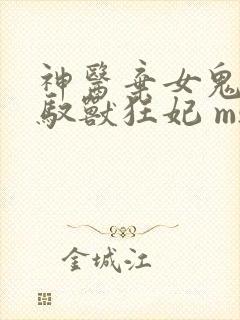 神醫棄女鬼
馭獸狂妃 m
金城江